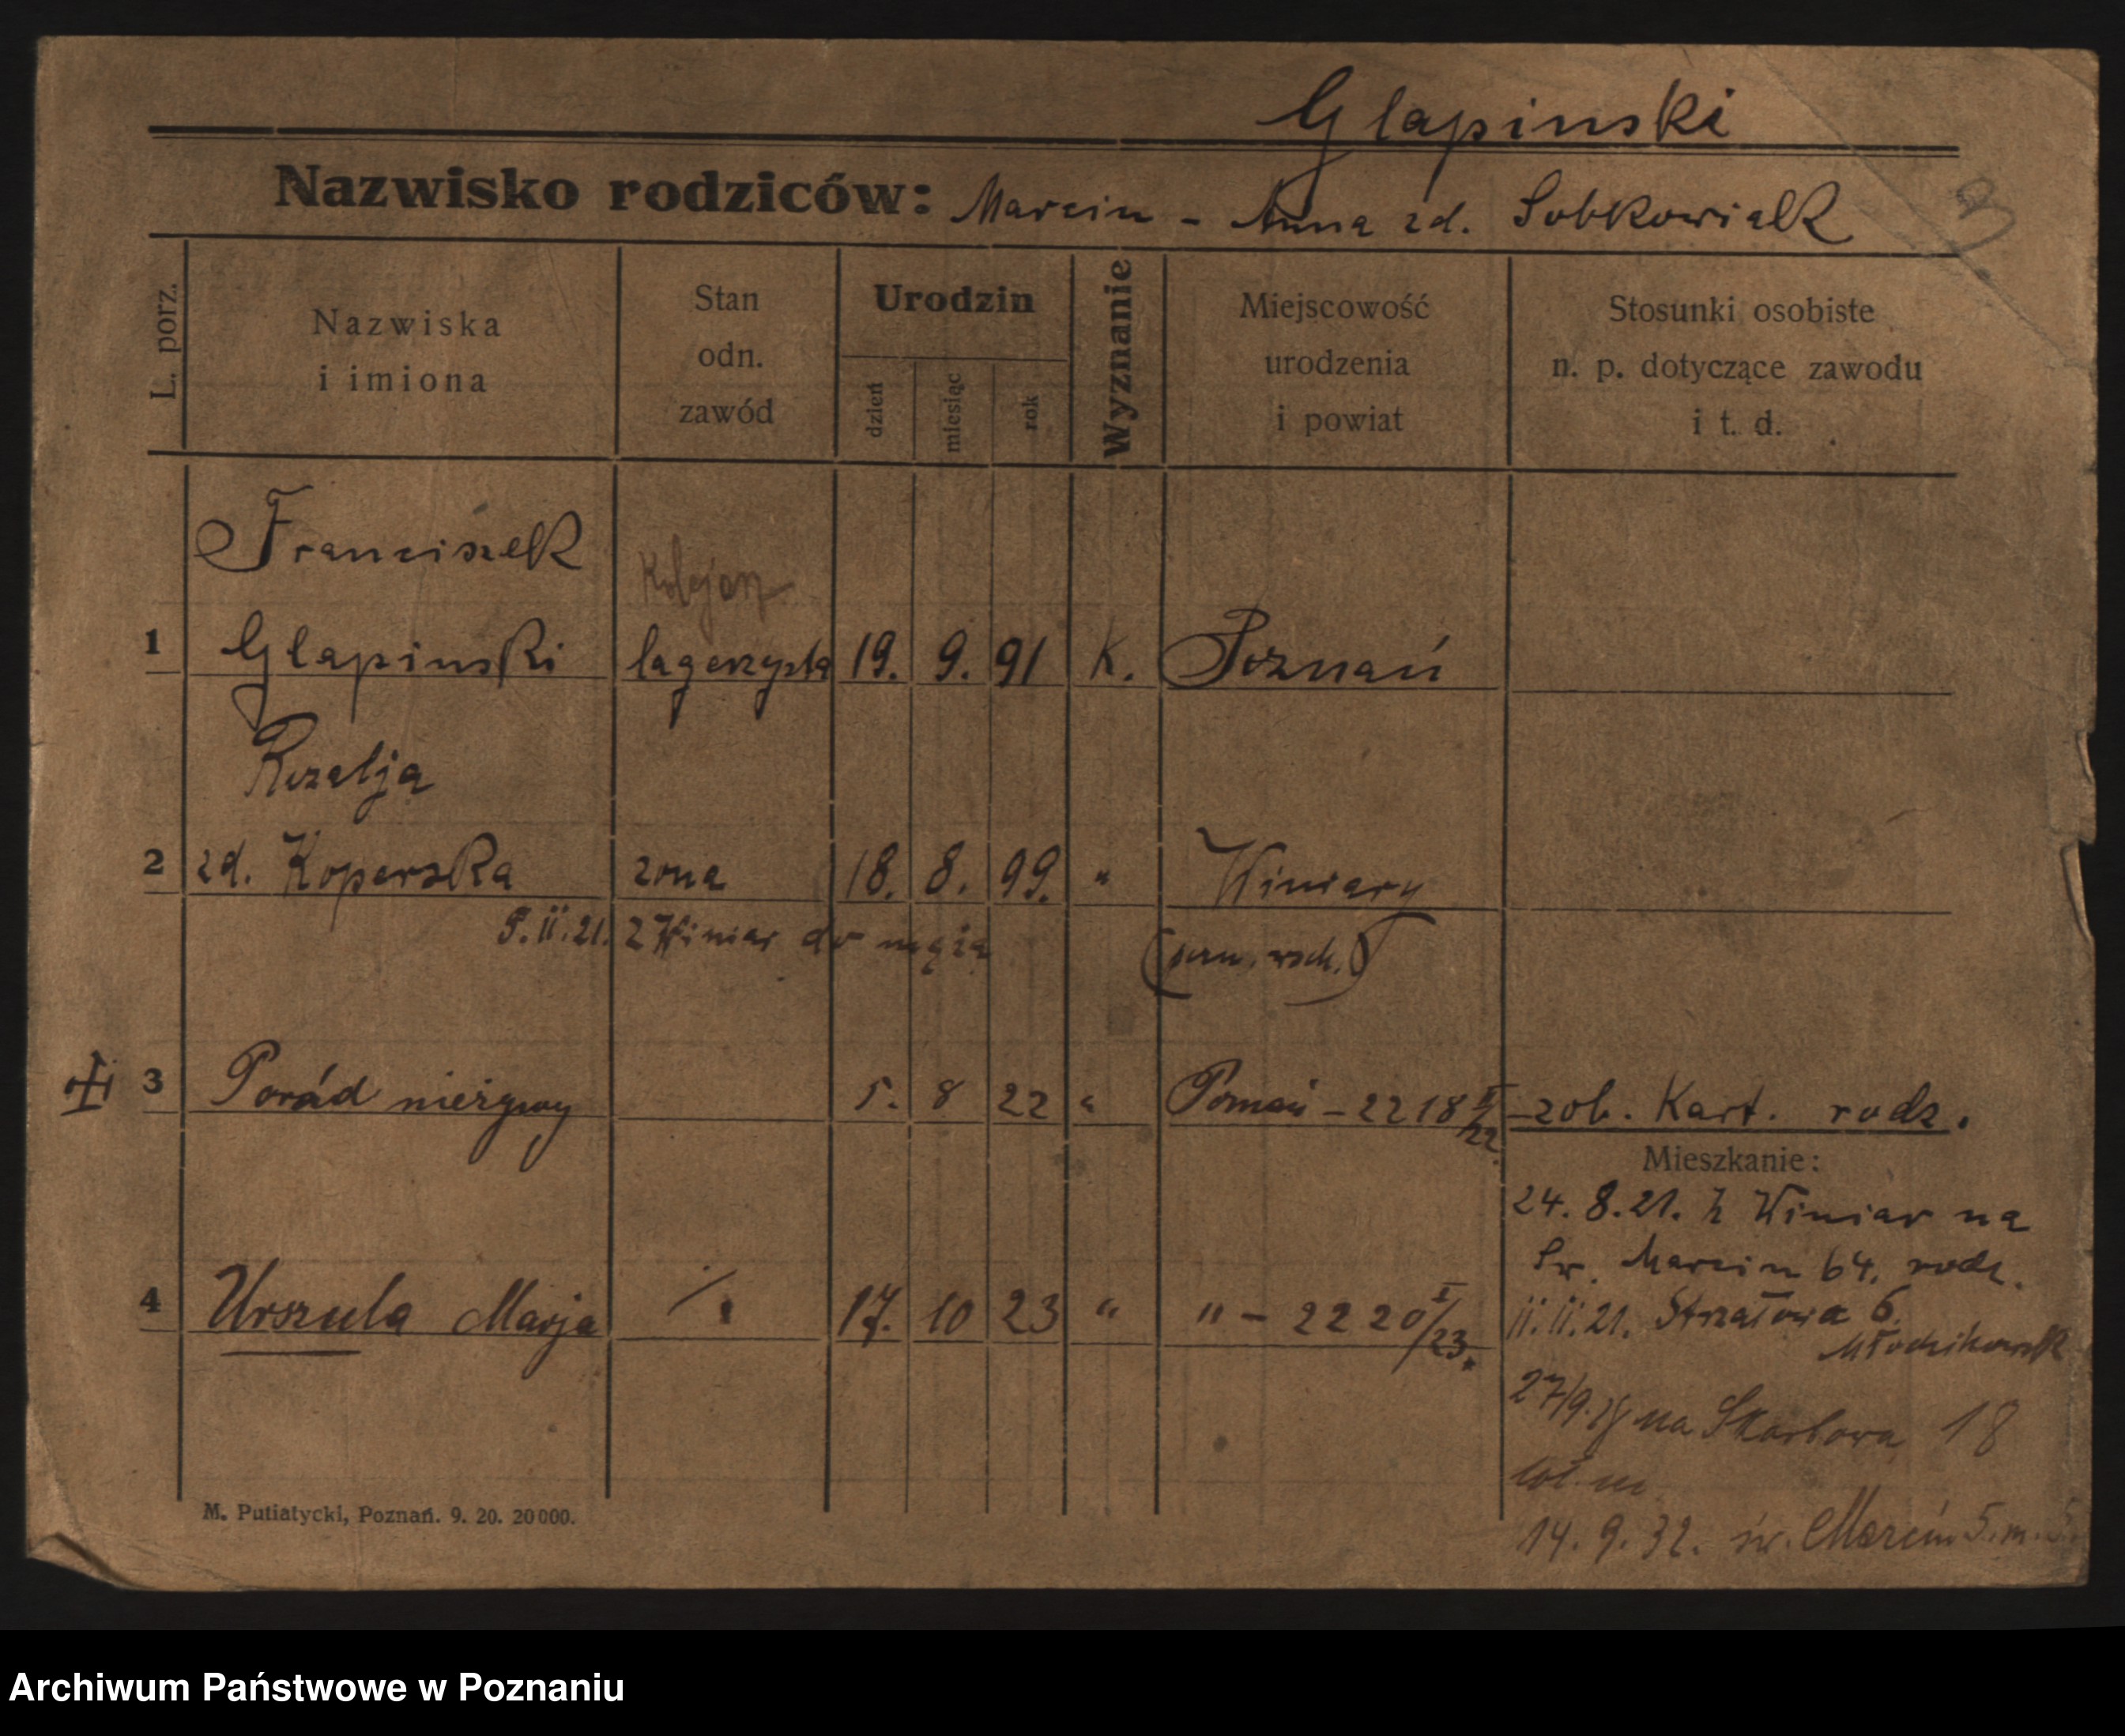 Glapinski
Nazwisko rodziców: Marcin - Anna zd. Sobkowiak
L. porz.
Nazwiska
i imiona
Stan
odn.
zawód
Urodzin
dzień
miesiąc
rok
Wyznanie
Miejscowość
urodzenia
i powiat
Stosunki osobiste
n. p. dotyczące zawodu
i t. d.
Franciszek
Kolejarz
1 Glapinski lagerzysta 19. 9. 91 K. Poznań
Rozalja
2 zd. Koperska zona 18. 8. 99. " Winiary
11.21. z Winiar do męża (pozn. wsch.)
3 Poród nieżywy 5. 8 22 " Poznań - 2218 V/22 - zob. Kart. rodz.
Mieszkanie:
24. 8. 21. z Winiar na
Św. Marcin 64. rodz.
4 Urszula Marja ./. 17. 10 23 " " - 2220 I/23.
11. 11. 21. Strzałowa 6.
27/9. na Skarbowa 18
14. 9. 32. św. Marcin 5. m.
M. Putiatycki, Poznań. 9. 20. 20000.
Archiwum Państwowe w Poznaniu